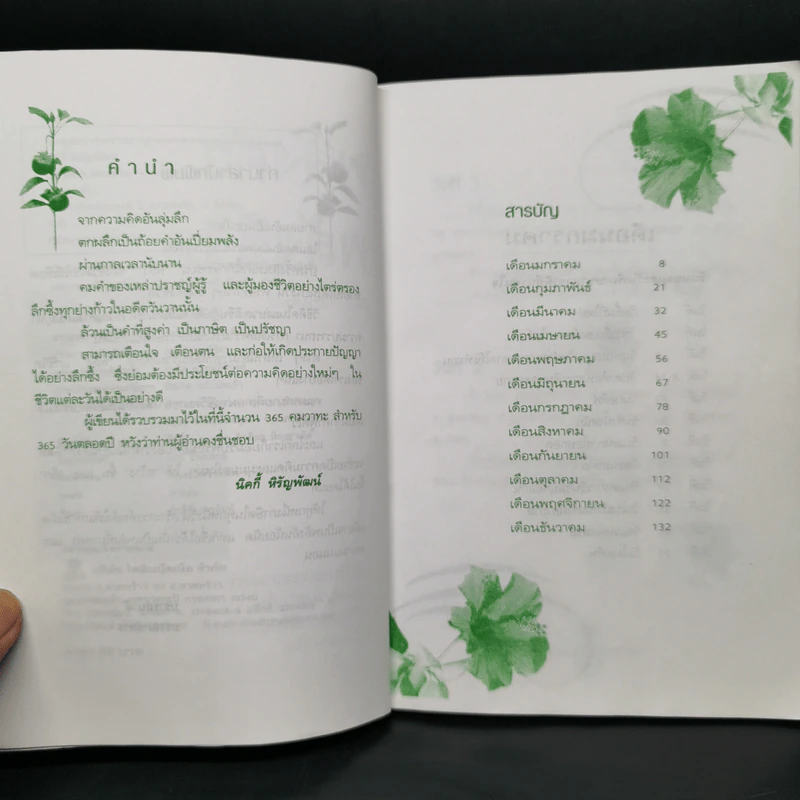 คำนำ
จากความคิดอันลุ่มลึก
ตกผลึกเป็นถ้อยคำอันเปี่ยมพลัง
ผ่านกาลเวลานับนาน
คมคำของเหล่าปราชญ์ผู้รู้ และผู้มองชีวิตอย่างไตร่ตรอง
ลึกซึ้งทุกย่างก้าวในอดีตวันวานนั้น
ล้วนเป็นคำที่สูงค่า เป็นภาษิต เป็นปรัชญา
สามารถเตือนใจ เตือนตน และก่อให้เกิดประกายปัญญา
ได้อย่างลึกซึ้ง ซึ่งย่อมต้องมีประโยชน์ต่อความคิดอย่างใหม่ๆ ใน
ชีวิตแต่ละวันได้เป็นอย่างดี
ผู้เขียนได้รวบรวมมาไว้ในที่นี้จำนวน 365 คมวาทะ สำหรับ
365 วันตลอดปี หวังว่าท่านผู้อ่านคงชื่นชอบ
นิคกี้ หิรัญพัฒน์
สารบัญ
เดือนมกราคม 8
เดือนกุมภาพันธ์ 21
เดือนมีนาคม 32
เดือนเมษายน 45
เดือนพฤษภาคม 56
เดือนมิถุนายน 67
เดือนกรกฎาคม 78
เดือนสิงหาคม 90
เดือนกันยายน 101
เดือนตุลาคม 112
เดือนพฤศจิกายน 122
เดือนธันวาคม 132